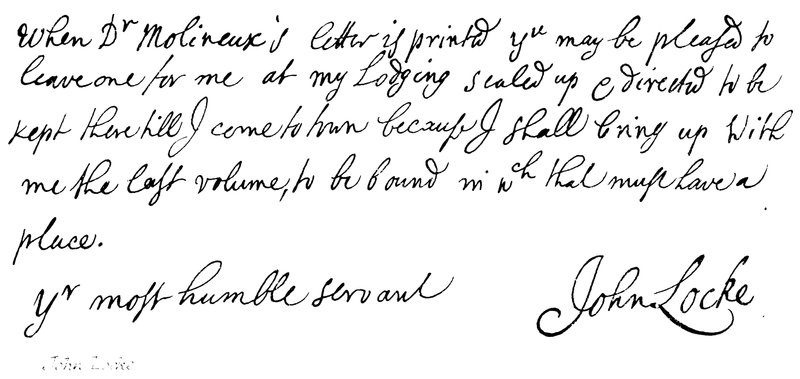 When Dr Molineux's letter is printd yu may be pleasd to
leave one for me at my Lodging sealed up & directd to be
kept there till I come to town because I shall bring up with
me the last volume, to be bound in wch that must have a
place.
yr most humble servant John Locke
John Locke